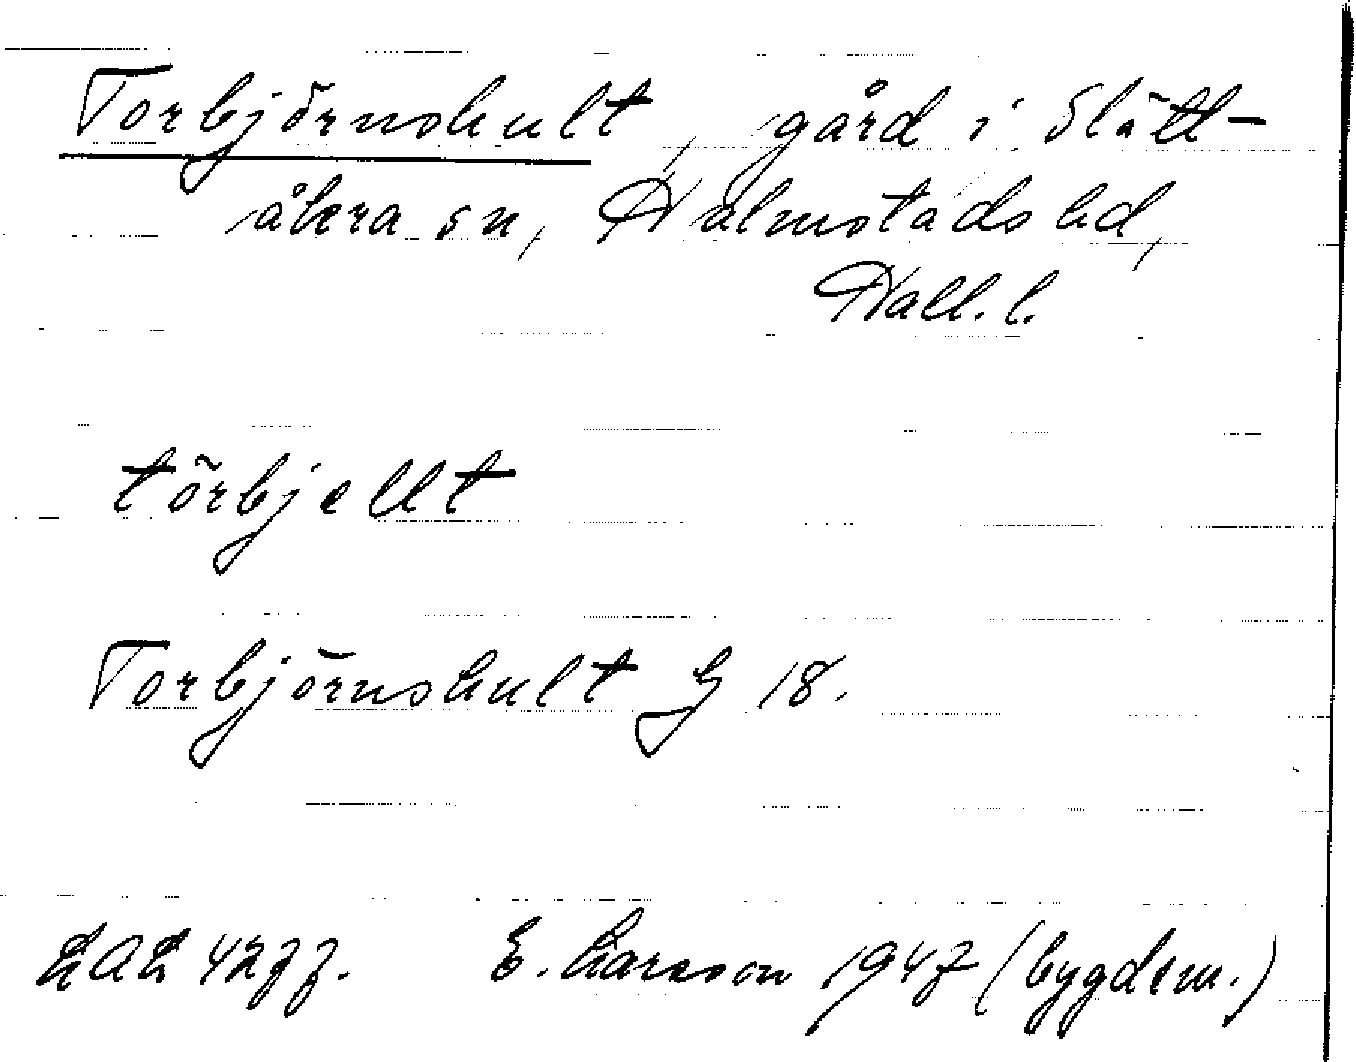 Torbjörnshult, gård i Slätt-
åkra sn, Halmstads hd,
Hall. l.
törbjellt
Torbjörnshult G 18.
LAL 4277. E. Larsson 1947 (bygdem.)